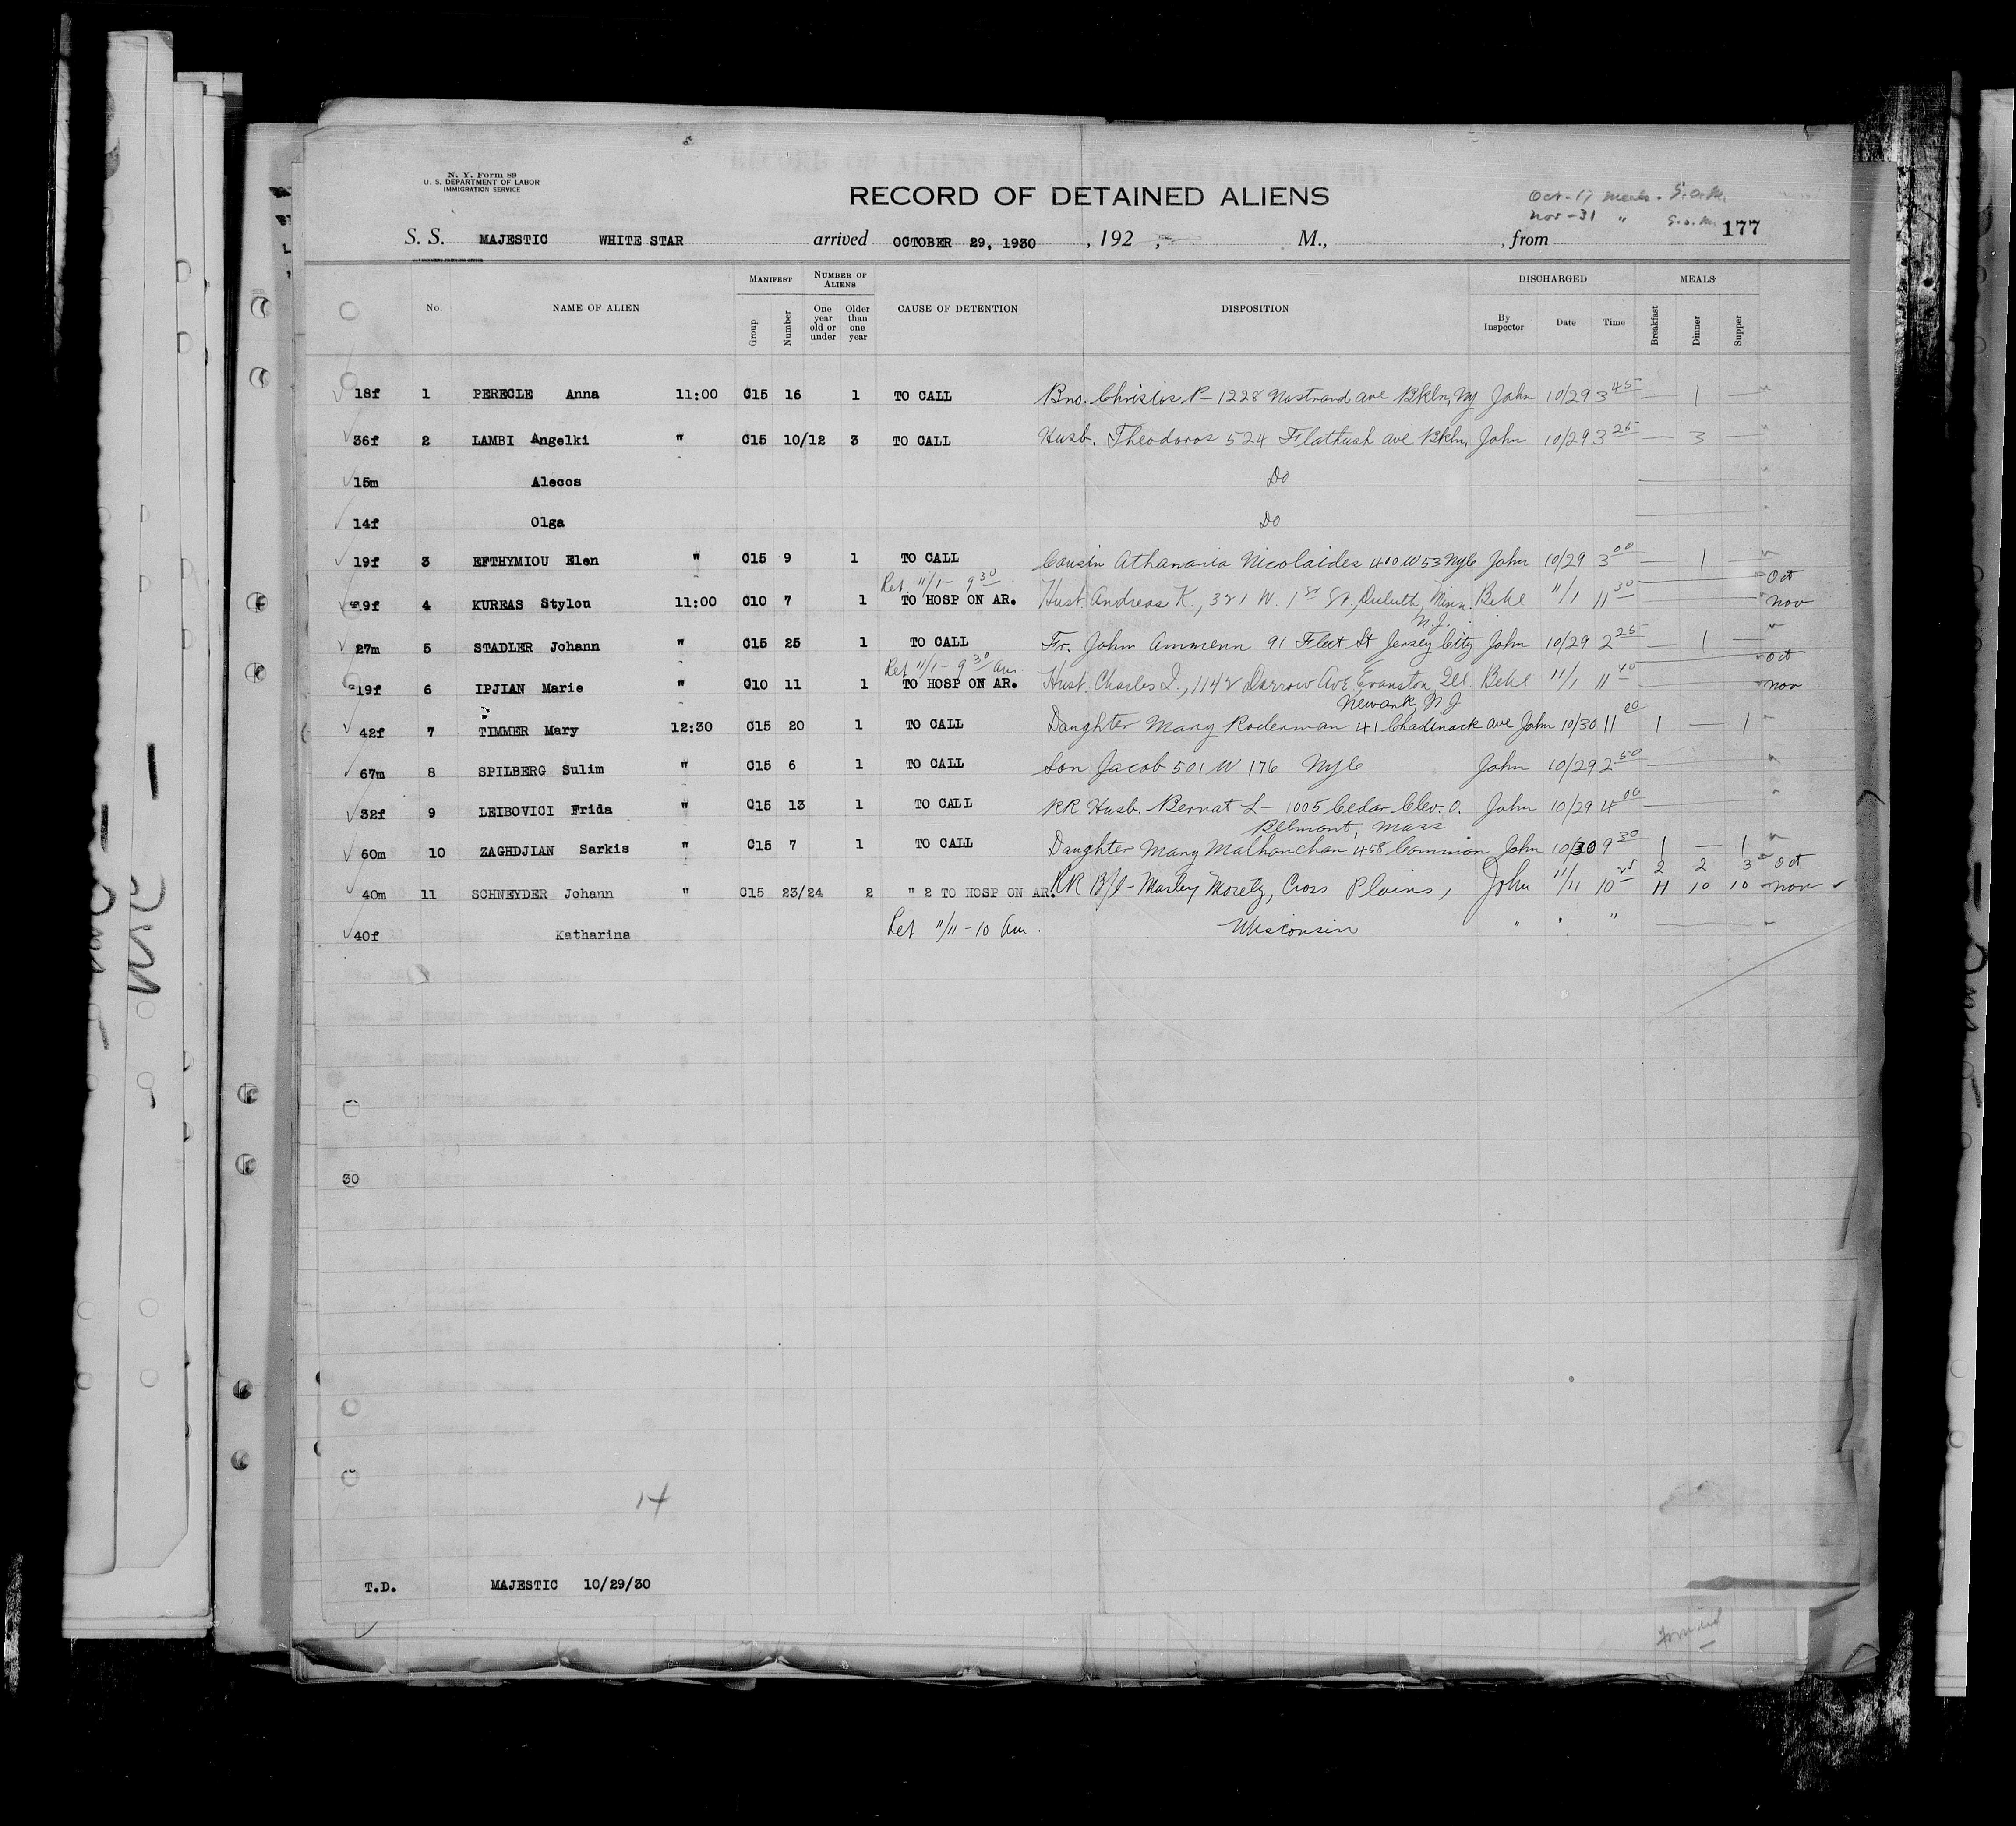 N. Y. Form 89
U. S. DEPARTMENT OF LABOR
IMMIGRATION SERVICE
RECORD OF DETAINED ALIENS
Oct. 17 meals.
Nov - 31 "
177
S. S. MAJESTIC WHITE STAR arrived OCTOBER 29, 1930 , 192 , M., , from
No. NAME OF ALIEN MANIFEST Group Number NUMBER OF ALIENS One year old or under Older than one year CAUSE OF DETENTION DISPOSITION DISCHARGED By Inspector Date Time MEALS Breakfast Dinner Supper
18f 1 PERECLE Anna 11:00 C15 16 1 TO CALL Bro. Christos P - 1228 Nostrand ave Bkln, Ny John 10/29 3 45 — 1 —
36f 2 LAMBI Angelki " C15 10/12 3 TO CALL Husb. Theodoros 524 Flatbush ave Bkln, John 10/29 3 25 — 3 —
15m Alecos Do
14f Olga Do
19f 3 EFTHYMIOU Elen " C15 9 1 TO CALL Cousin Athanasia Nicolaides 400 W 53 NyC John 10/29 3 00 — 1 —
Ret 11/1 - 9 30 Oct
19f 4 KUREAS Stylou 11:00 C10 7 1 TO HOSP ON AR. Husb. Andreas K., 321 W. 1st St., Duluth, Minn. 11/1 11 30 Nov
N.J.
27m 5 STADLER Johann " C15 25 1 TO CALL Fr. John Ammenn 91 Fleet St Jersey City John 10/29 2 25 — 1 —
Ret 11/1 - 9 30 am. Oct
19f 6 IPJIAN Marie " C10 11 1 TO HOSP ON AR. Husb. Charles I., 1142 Darrow Ave Evanston, Ill. 11/1 11 40 Nov
Newark, N J
42f 7 TIMMER Mary 12:30 C15 20 1 TO CALL Daughter Mary Roderman 41 Chadinack ave John 10/30 11 00 1 — 1
67m 8 SPILBERG Sulim " C15 6 1 TO CALL Son Jacob 501 W 176 NyC John 10/29 2 50
32f 9 LEIBOVICI Frida " C15 13 1 TO CALL RR Husb. Bernat L - 1005 Cedar Clev. O. John 10/29 4 00
Belmont, Mass
60m 10 ZAGHDJIAN Sarkis " C15 7 1 TO CALL Daughter Mary Malhanchan 458 Common John 10/30 9 30 1 — 1
2 2 3 Oct
40m 11 SCHNEYDER Johann " C15 23/24 2 " 2 TO HOSP ON AR. RR B/l - Marley Morety, Cross Plains, John 11/11 10 25 11 10 10 Nov
40f Katharina Ret 11/11 - 10 am. Wisconsin " " "
30
14
T.D. MAJESTIC 10/29/30